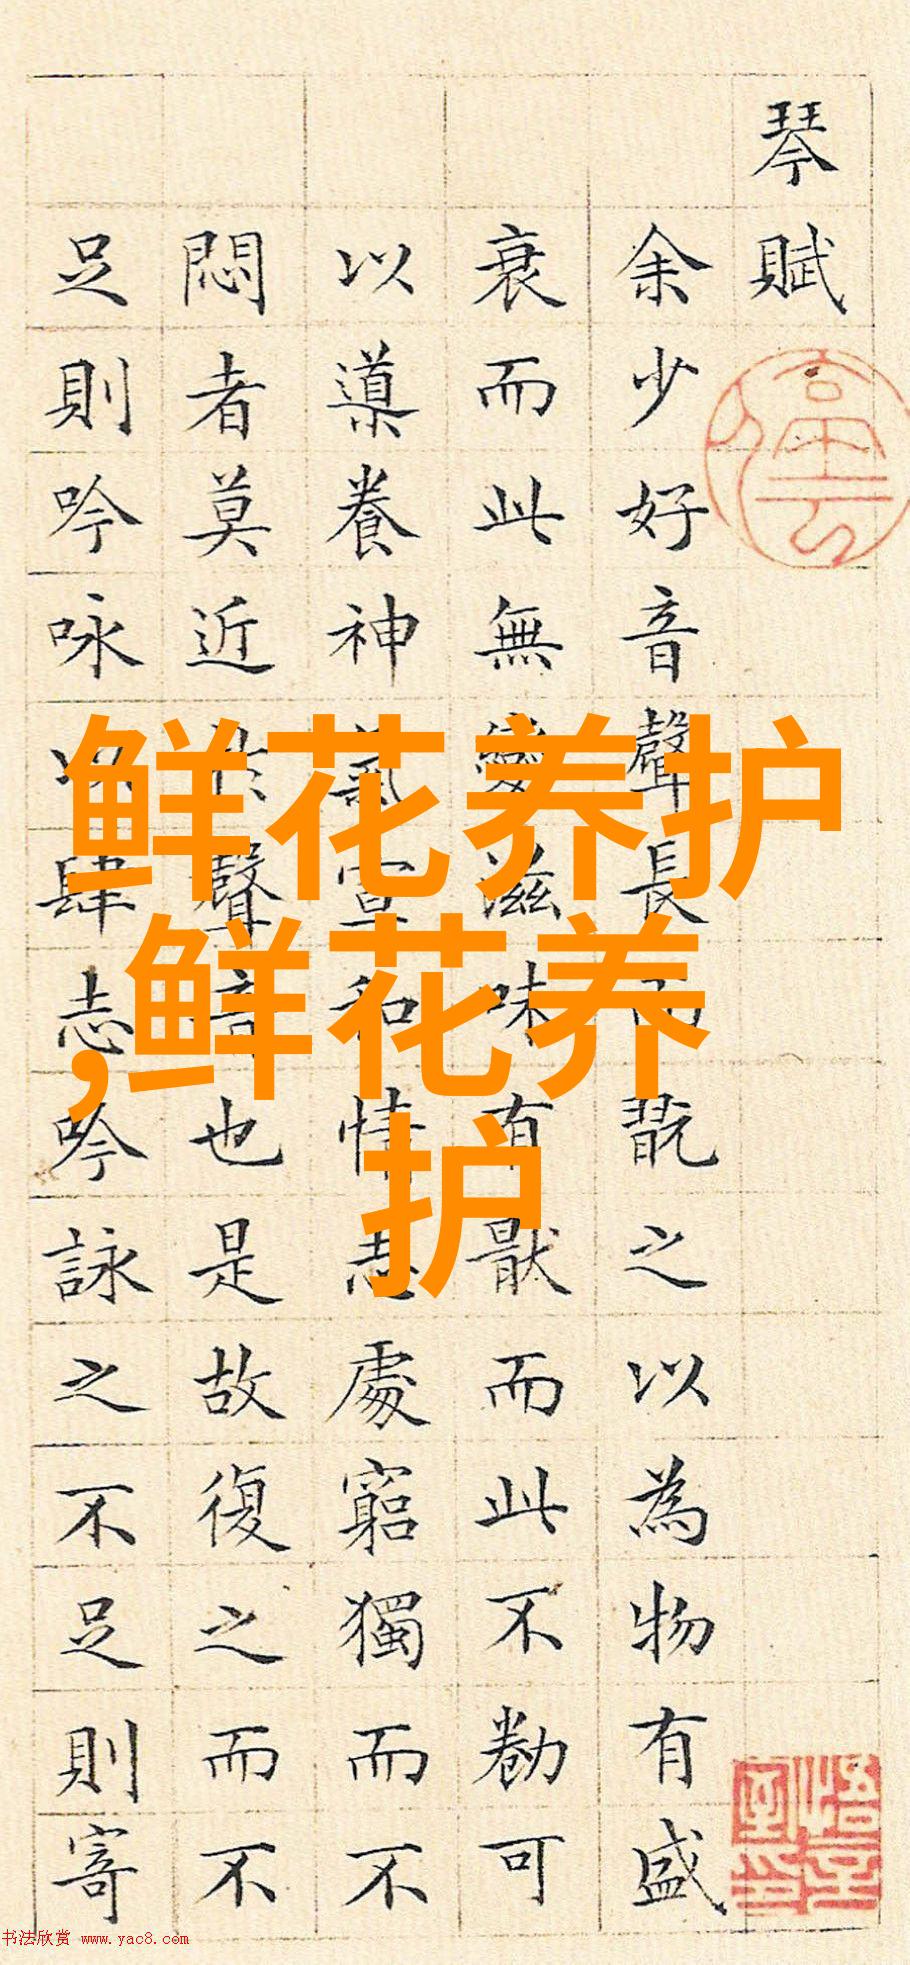 琴賦
余少好音聲長而翫之以為物有盛
衰而此無變滋味有猒而此不勌可
以導養神氣宣和情志處窮獨而不
悶者莫近於聲音也是故復之而不
足則吟咏以肆志吟詠之不足則寄
鲜花养护
,鲜花养
护
书法欣赏 www.yac8.com